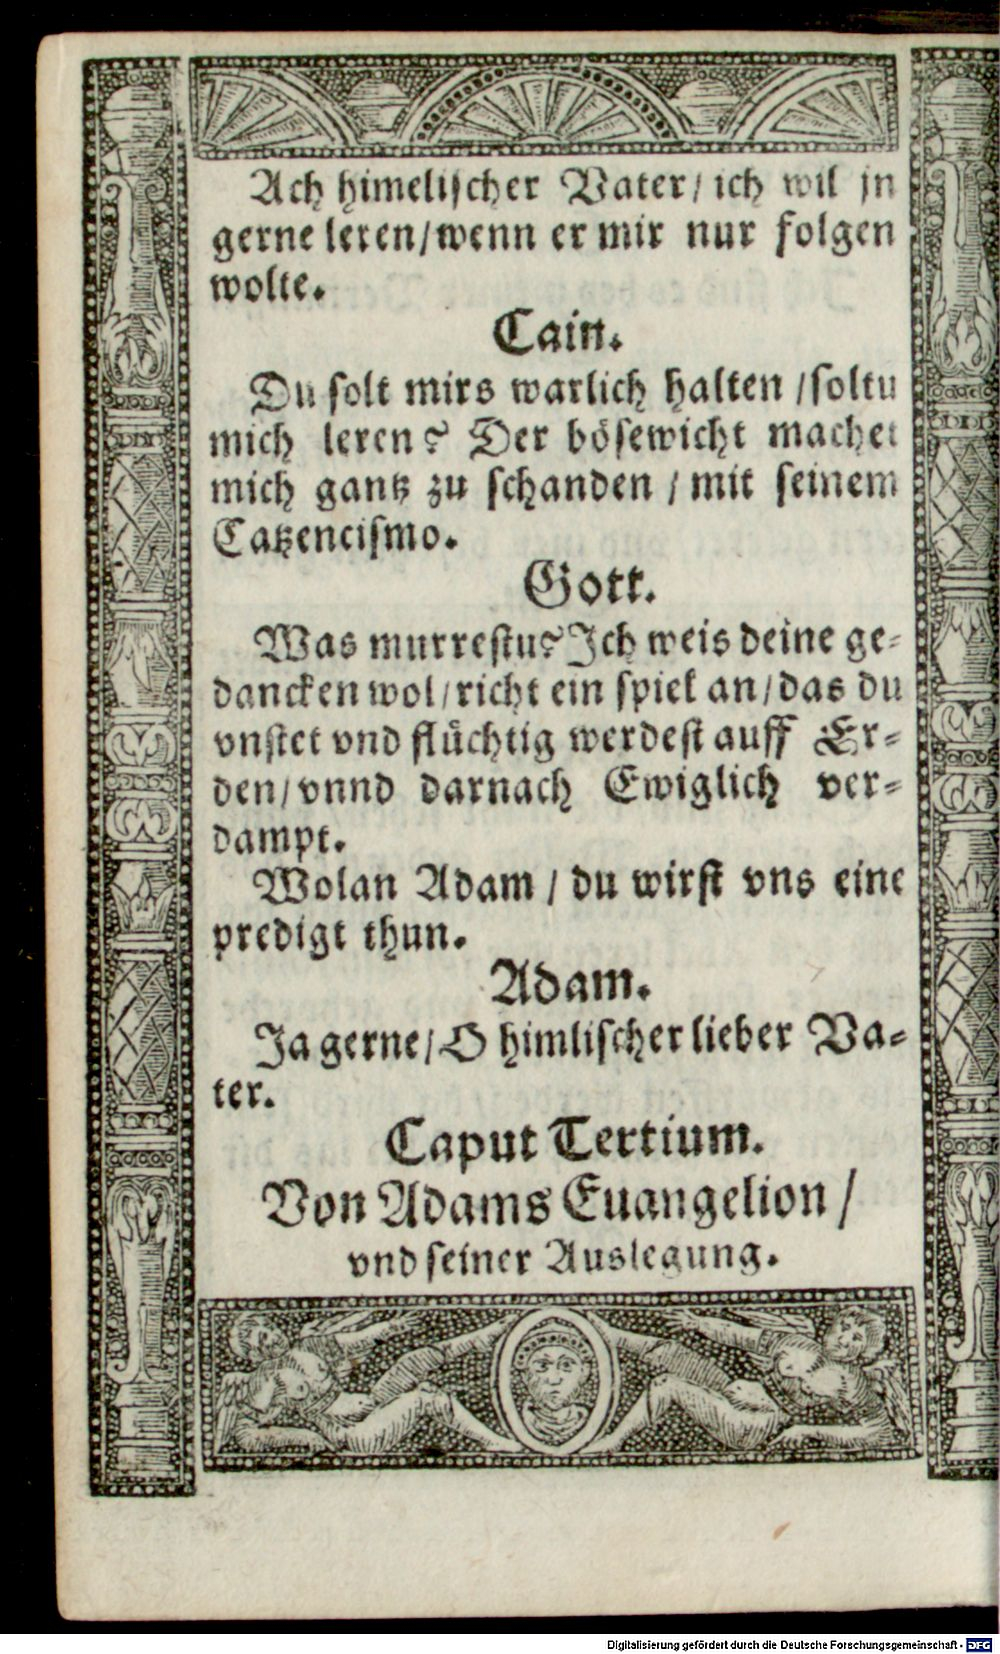 Ach himelischer Vater / ich wil jn
gerne leren / wenn er mir nur folgen
wolte.
Cain.
Du solt mirs warlich halten / soltu
mich leren? Der bösewicht machet
mich gantz zu schanden / mit seinem
Catzencismo.
Gott.
Was murrestu? Ich weis deine ge-
dancken wol / richt ein spiel an / das du
vnstet vnd flüchtig werdest auff Er-
den / vnnd darnach Ewiglich ver-
dampt.
Wolan Adam / du wirst vns eine
predigt thun.
Adam.
Ja gerne / O himlischer lieber Va-
ter.
Caput Tertium.
Von Adams Euangelion /
vnd seiner Auslegung.
Digitalisierung gefördert durch die Deutsche Forschungsgemeinschaft - DFG